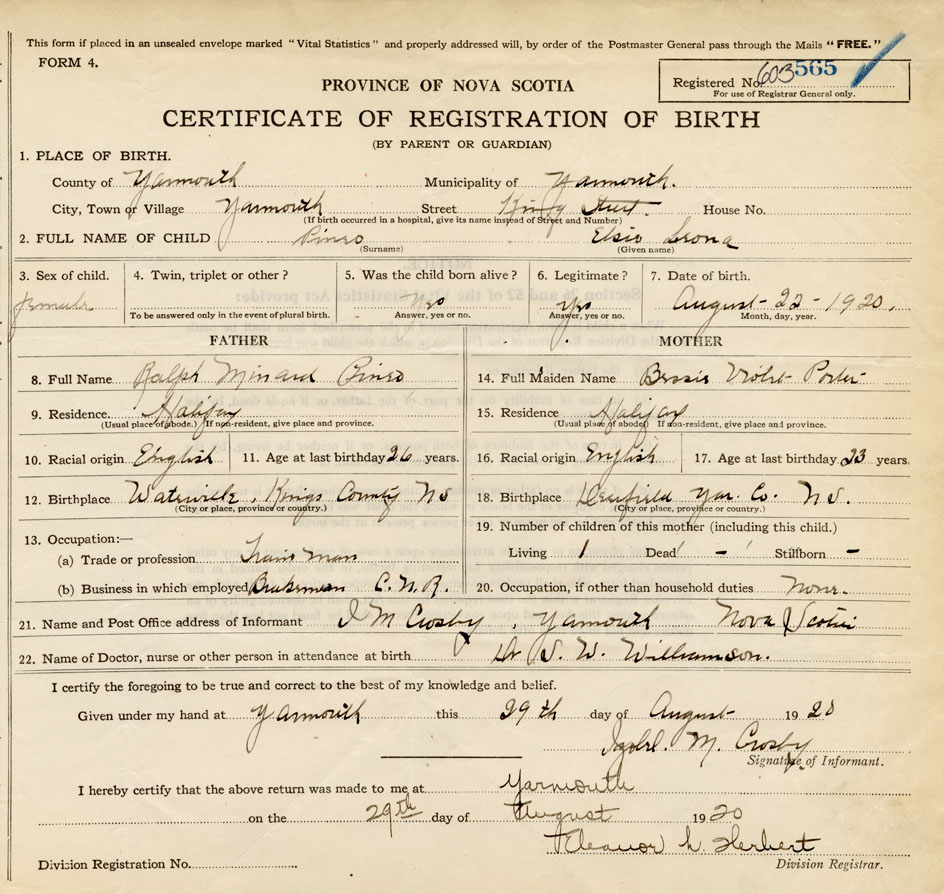 This form if placed in an unsealed envelope marked "Vital Statistics" and properly addressed will, by order of the Postmaster General pass through the Mails "FREE."
FORM 4.
Registered No. 603565
For use of Registrar General only.
PROVINCE OF NOVA SCOTIA
CERTIFICATE OF REGISTRATION OF BIRTH
(BY PARENT OR GUARDIAN)
1. PLACE OF BIRTH.
County of Yarmouth Municipality of Yarmouth.
City, Town or Village Yarmouth Street King Street. House No.
(If birth occurred in a hospital, give its name instead of Street and Number)
2. FULL NAME OF CHILD Pineo Elsie Leona
(Surname) (Given name)
3. Sex of child. 4. Twin, triplet or other? 5. Was the child born alive? 6. Legitimate? 7. Date of birth.
Female Yes Yes August 22 - 1920.
To be answered only in the event of plural birth. Answer, yes or no. Answer, yes or no. Month, day, year.
FATHER MOTHER
8. Full Name Ralph Minard Pineo 14. Full Maiden Name Bessie Violet Porter
9. Residence Halifax 15. Residence Halifax
(Usual place of abode.) If non-resident, give place and province. (Usual place of abode) If non-resident, give place and province.
10. Racial origin English 11. Age at last birthday 26 years. 16. Racial origin English 17. Age at last birthday 23 years.
12. Birthplace Waterville, Kings County NS 18. Birthplace Deerfield Yar. Co. N S.
(City or place, province or country.) (City or place, province or country.)
13. Occupation:— 19. Number of children of this mother (including this child.)
(a) Trade or profession Train Man Living 1 Dead - Stillborn -
(b) Business in which employed Brakeman C.N.R. 20. Occupation, if other than household duties None.
21. Name and Post Office address of Informant I M Crosby, Yarmouth Nova Scotia
22. Name of Doctor, nurse or other person in attendance at birth Dr S. W. Williamson.
I certify the foregoing to be true and correct to the best of my knowledge and belief.
Given under my hand at Yarmouth this 29th day of August 1920
M. Crosby
Signature of Informant.
I hereby certify that the above return was made to me at Yarmouth
on the 29th day of August 1920
Eleanor L. Herbert
Division Registration No. Division Registrar.